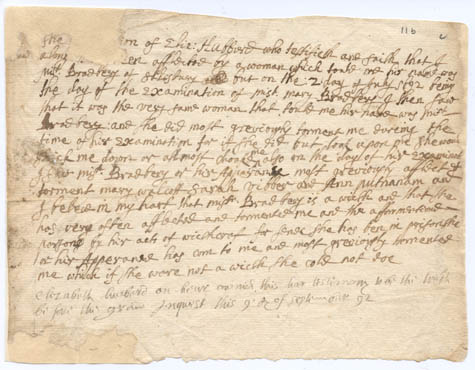 116
The ion of Eliz: Hubburd who testifieth and saith that I
a long en afflected by a woman which tould me hir name was
mist. Bradbery of Salsbury but on the 2 day of July 1692 being
the day of the examination of mist. mary Bradbery I then saw
that it was the very same woman that tould me hir name was mist
Bradbery: and she did most greviously torment me dureing the
time of hir examination for if she did but look upon me she would
strick me down or allmost choak me also on the day of hir examina
I saw mist. Bradbery or hir Apperance most greviously afflect and
torment mary walcott Sarah vibber and Ann putnam and
I beleve in my heart that mist. Bradbery is a wicth and that she
has very often affleced and tormented me and the afformentioned
parsons by hir acts of wicthcraft for sence she has ben in prison she
or hir Apperance has com to me and most greviously tormented
me which if she ware not a wicth she cold not doe
Elizabeth hubburd on this har testimony to be the truth
be fore the grand Inquest this 9: of september 92